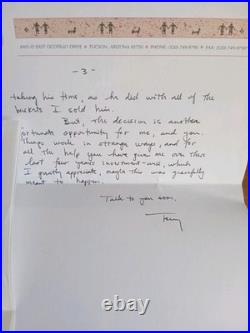 EAST OCOTILLO DRIVE • TUCSON, ARIZONA • PHONE: • FAX:
- 3 -
taking his time, as he did with all of the
baskets I sold him.
But, the decision is another
fortunate opportunity for me, and you.
Things work in strange ways, and for
all the help you have given me over these
last few years investment-wise, which
I greatly appreciate, maybe this was gracefully
meant to happen.
Talk to you soon,